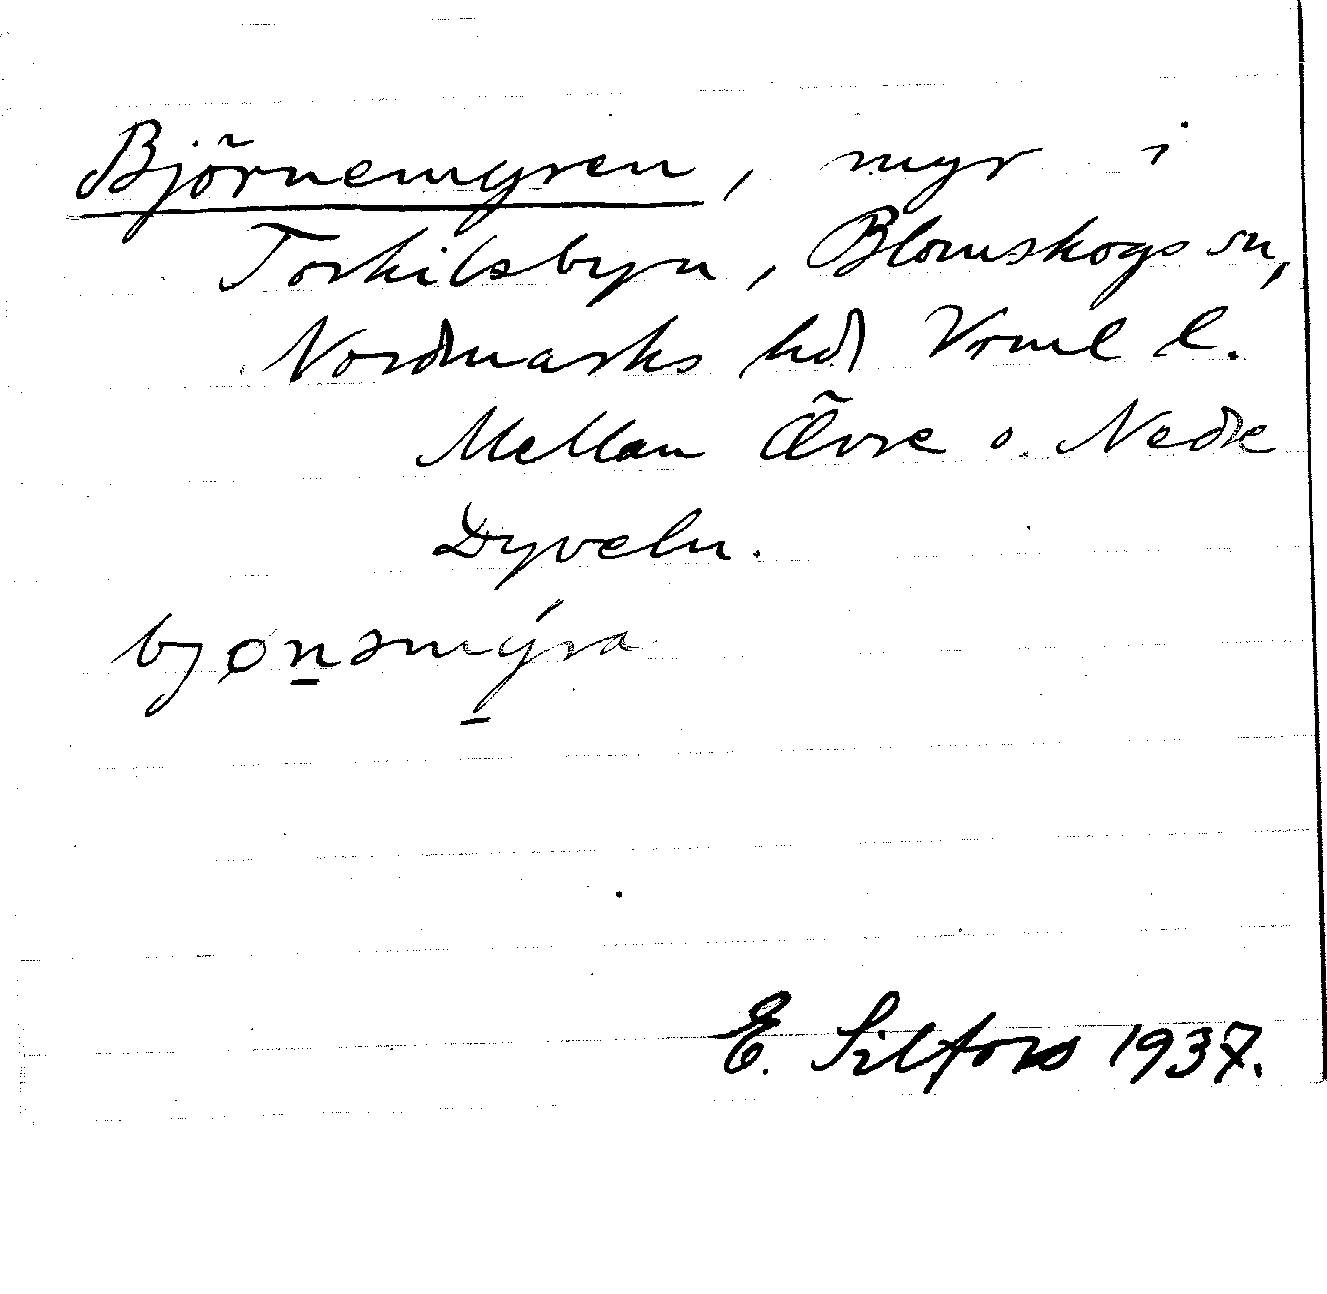 Björnemyren, myr i
Torkilsbyn, Blomskogs sn,
Nordmarks hd, Vrml l.
Mellan Övre o. Nedre
Dyveln.
bjøn̠əmýra
E. Silfors 1937.